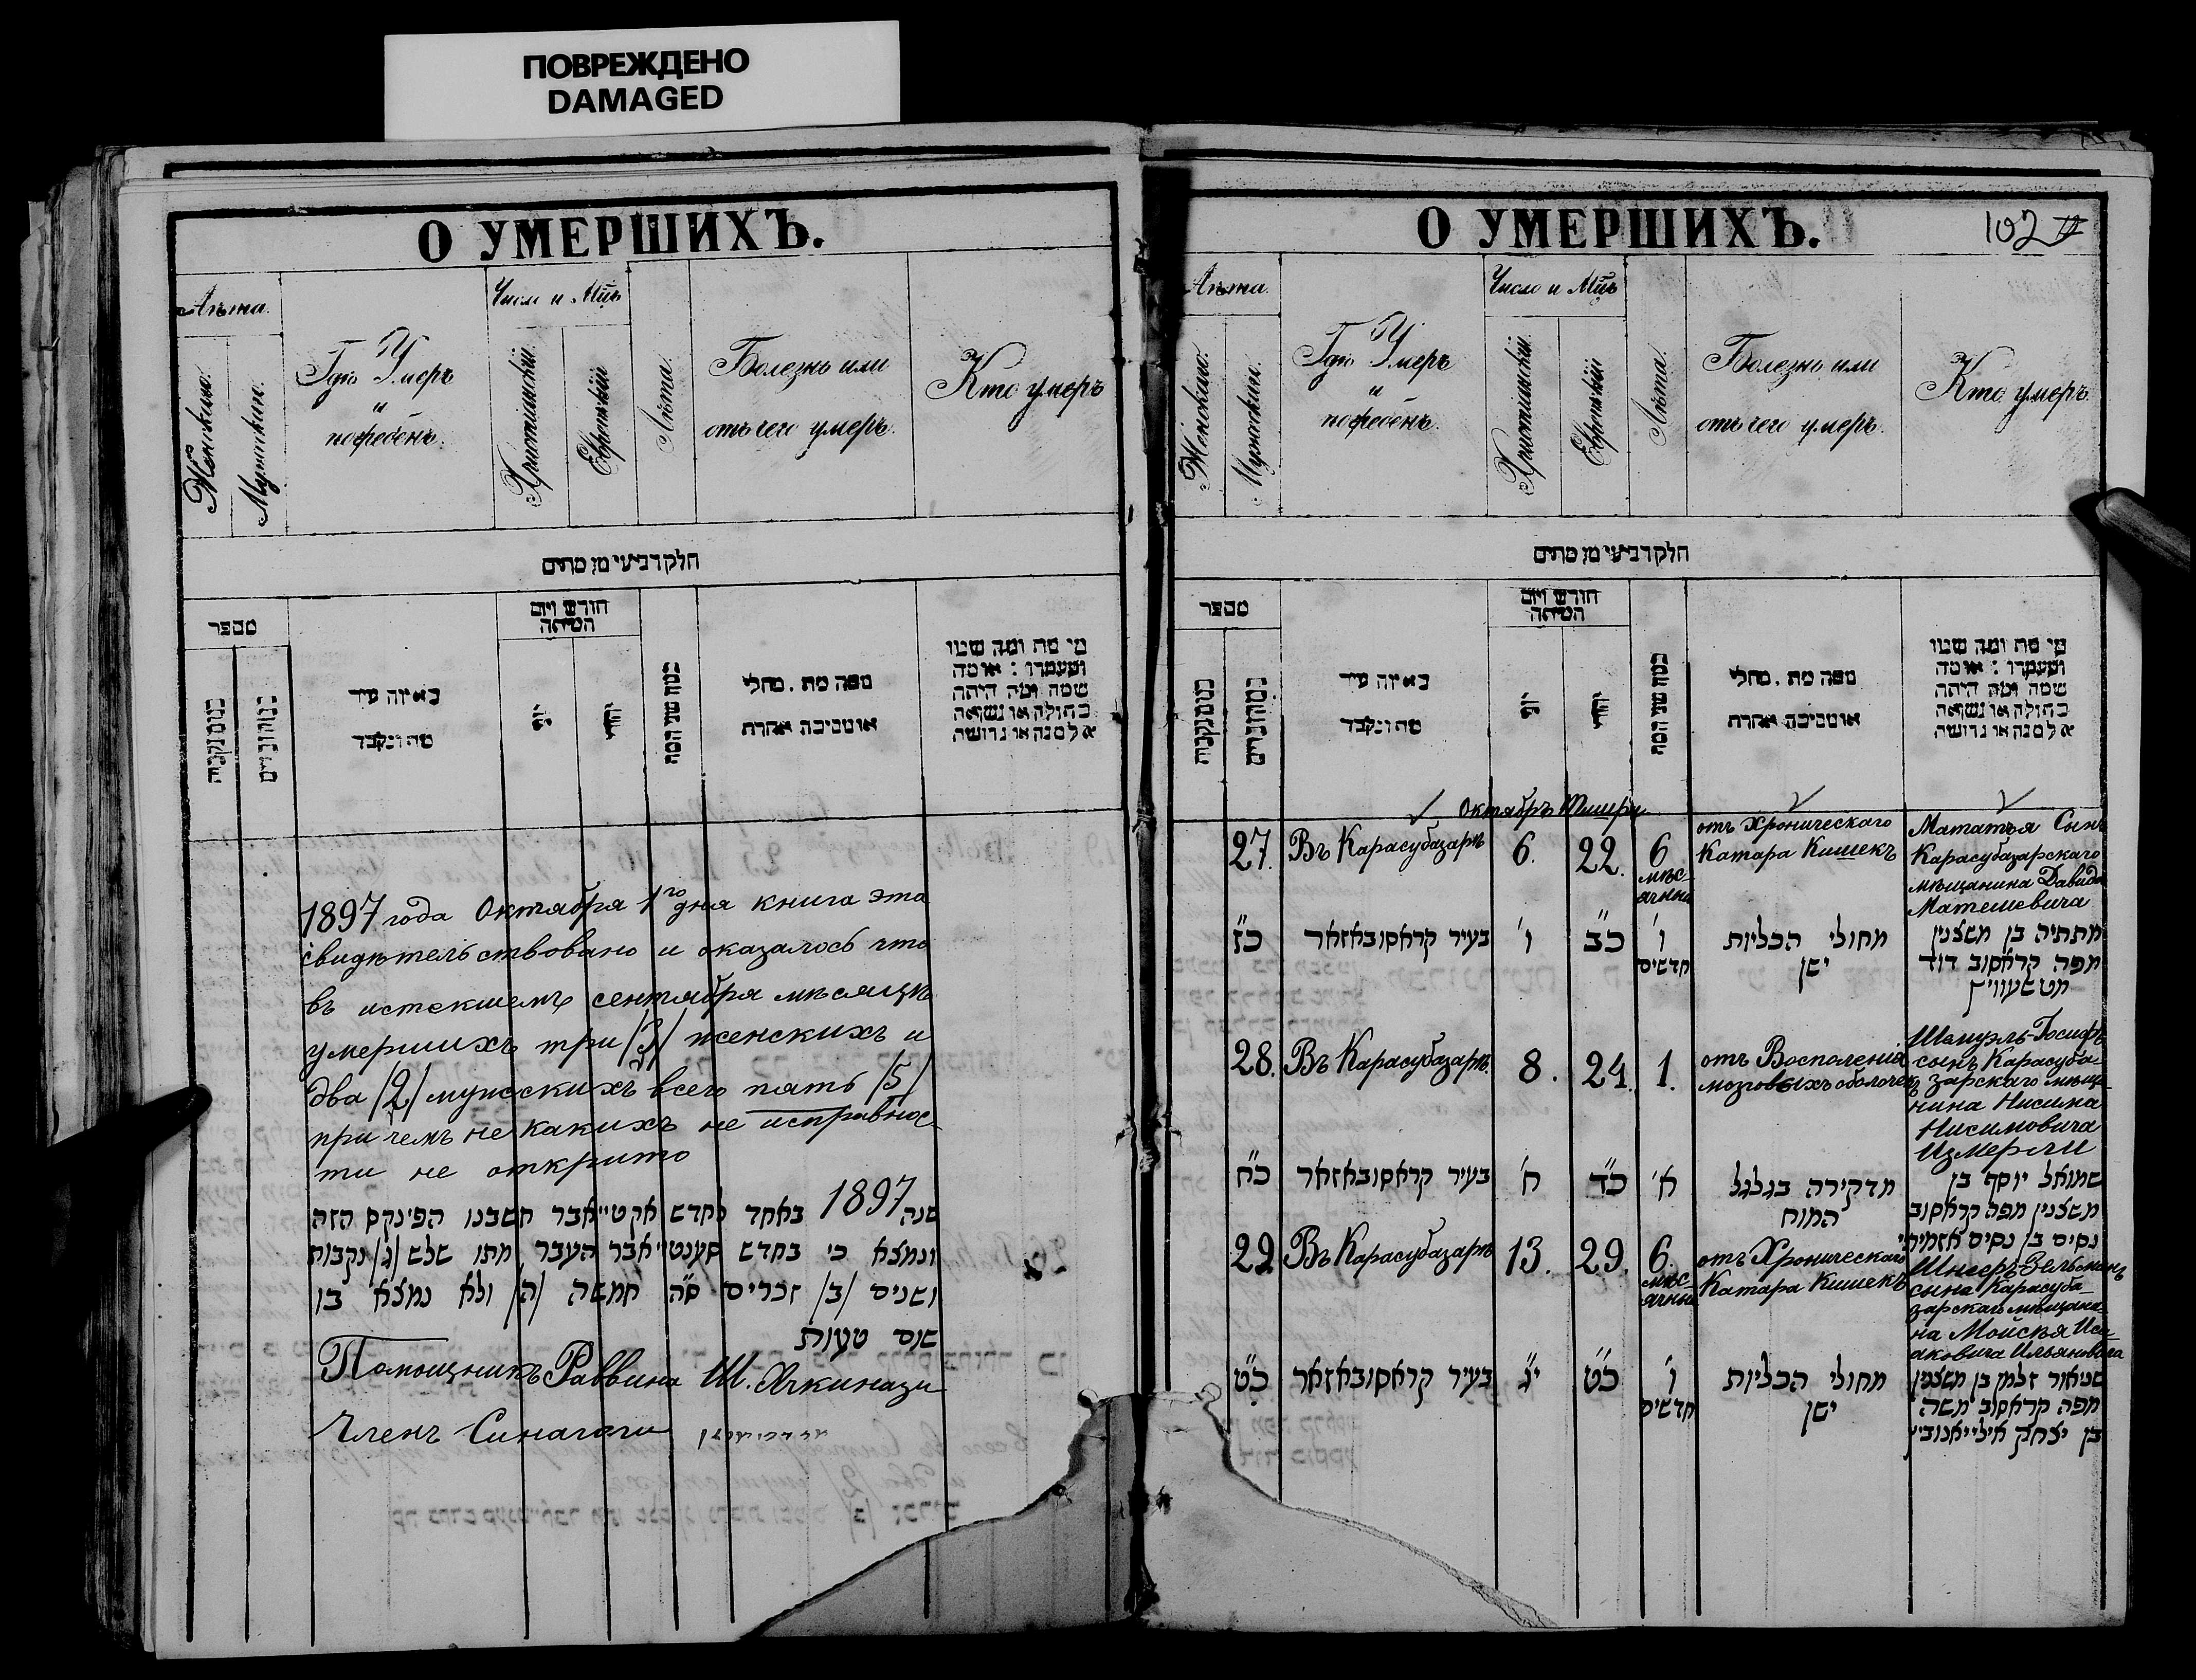 ПОВРЕЖДЕНО
DAMAGED
О УМЕРШИХЪ.
Лѣта.
Женскихъ.
Мужскихъ.
Гдѣ Умеръ
и
погребенъ.
Число и Мцъ
Христіанскій.
Еврейскій
Лѣта.
Болезнь или
отъ чего умеръ.
Кто умеръ
חלק רביעי מן מתים
מספר
באיזה עיר
מת ונקבר
חודש ויום
המיתה
יוני
יהודי
כמה שני המת
ממה מת . מחלי
או מסיבה אחרת
מי מת ומה שמו
ומעמדו : או מה
שמה ומה היתה
בתולה או נשואה
אלמנה או גרושה
1897 года Октября 1го дня книга эта
свидѣтельствовано и оказалось что
въ истекшемъ сентября мѣсяцѣ
умершихъ три /3/ женскихъ и
два /2/ мужскихъ всего пять /5/
при чемъ не какихъ не исправнос-
ти не открито
שנה 1897 באחד לחדש אקטיאבר חשבנו הפינקס הזה
ונמצא כי בחדש סענטיאבר העבר מתו שלש /ג/ נקבות
ושנים /ב/ זכרים ס"ה חמשה /ה/ ולא נמצא בו
שום טעות
Помощникъ Раввина Ш. Ачкинази
Членъ Синагоги
О УМЕРШИХЪ.
102
Лѣта.
Женскихъ.
Мужскихъ.
Гдѣ Умеръ
и
погребенъ.
Число и Мцъ
Христіанскій.
Еврейскій
Лѣта.
Болезнь или
отъ чего умеръ.
Кто умеръ
חלק רביעי מן מתים
מספר
באיזה עיר
מת ונקבר
חודש ויום
המיתה
יוני
יהודי
כמה שני המת
ממה מת . מחלי
או מסיבה אחרת
מי מת ומה שמו
ומעמדו : או מה
שמה ומה היתה
בתולה או נשואה
אלמנה או גרושה
Октябрь Тишри
27. Въ Карасубазарѣ 6. 22. 6
мѣс-
ячный
отъ Хроническаго
Катара Кишекъ
Мататья Сынъ
Карасубазарскаго
мѣщанина Давида
Матешевича
כ"ז בעיר קראסובאזאר ו' כ"ב ו'
חדשים
מחולי הכליות
ישן
מתתיה בן משצנין
מפה קראסוב דוד
מטשעוויץ
28. Въ Карасубазарѣ. 8. 24. 1.
отъ Восполенія
мозговыхъ оболочекъ
Шамуэль-Іосифъ
сынъ Карасуба-
зарскаго мѣща-
нина Нисима
Нисимовича
Измерли
כ"ח בעיר קראסובאזאר ח' כ"ד א'
מדקירה בגלגל
המוח
שמואל יוסף בן
משצנין מפה קראסוב
נסים בן נסים אזמירלי
29. Въ Карасубазарѣ 13. 29. 6.
мѣс-
ячный
отъ Хроническаго
Катара Кишекъ
Шнееръ-Зельманъ
сына Карасуба-
зарскаго мѣщани-
на Мойсѣя Иса-
аковича Ильяновича
כ"ט בעיר קראסובאזאר י"ג כ"ט ו'
חדשים
מחולי הכליות
ישן
שניאור זלמן בן משצנין
מפה קראסוב משה
בן יצחק איליאנוביץ